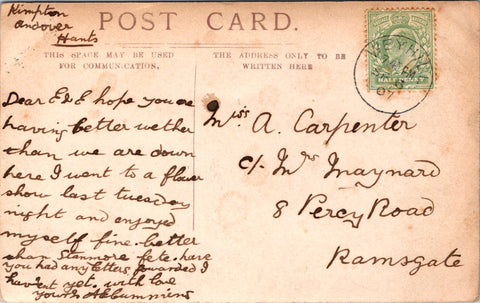 Kimpton
Andover
Hants
POST CARD.
THIS SPACE MAY BE USED
FOR COMMUNICATION.
THE ADDRESS ONLY TO BE
WRITTEN HERE
WEYH
HALFPENNY
Dear E & E hope you are
having better wether
than we are down
here I went to a flower
show last tuesday
night and enjoyed
myself fine. better
than Stanmore fete. have
you had any letters forwarded I
havent yet. with love
yours
Miss A. Carpenter
c/. Mrs Maynard
8 Percy Road
Ramsgate